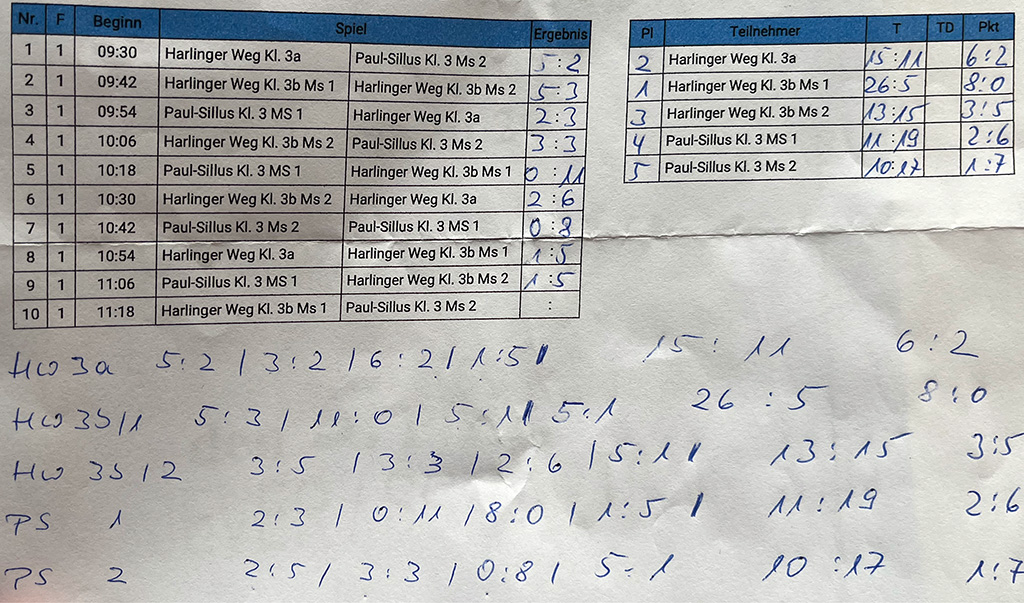 Nr. F Beginn Spiel Ergebnis
1 1 09:30 Harlinger Weg Kl. 3a Paul-Sillus Kl. 3 Ms 2 5:2
2 1 09:42 Harlinger Weg Kl. 3b Ms 1 Harlinger Weg Kl. 3b Ms 2 5:3
3 1 09:54 Paul-Sillus Kl. 3 MS 1 Harlinger Weg Kl. 3a 2:3
4 1 10:06 Harlinger Weg Kl. 3b Ms 2 Paul-Sillus Kl. 3 Ms 2 3:3
5 1 10:18 Paul-Sillus Kl. 3 MS 1 Harlinger Weg Kl. 3b Ms 1 0:11
6 1 10:30 Harlinger Weg Kl. 3b Ms 2 Harlinger Weg Kl. 3a 2:6
7 1 10:42 Paul-Sillus Kl. 3 Ms 2 Paul-Sillus Kl. 3 MS 1 0:8
8 1 10:54 Harlinger Weg Kl. 3a Harlinger Weg Kl. 3b Ms 1 1:5
9 1 11:06 Paul-Sillus Kl. 3 MS 1 Harlinger Weg Kl. 3b Ms 2 1:5
10 1 11:18 Harlinger Weg Kl. 3b Ms 1 Paul-Sillus Kl. 3 Ms 2 :
Pl Teilnehmer T TD Pkt
2 Harlinger Weg Kl. 3a 15:11 6:2
1 Harlinger Weg Kl. 3b Ms 1 26:5 8:0
3 Harlinger Weg Kl. 3b Ms 2 13:15 3:5
4 Paul-Sillus Kl. 3 MS 1 11:19 2:6
5 Paul-Sillus Kl. 3 Ms 2 10:17 1:7
HW 3a 5:2 | 3:2 | 6:2 | 1:5 | 15:11 6:2
HW 3b/1 5:3 | 11:0 | 5:1 | 5:1 26:5 8:0
HW 3b/2 3:5 | 3:3 | 2:6 | 5:1 | 13:15 3:5
PS 1 2:3 | 0:11 | 8:0 | 1:5 | 11:19 2:6
PS 2 2:5 | 3:3 | 0:8 | 5:1 10:17 1:7